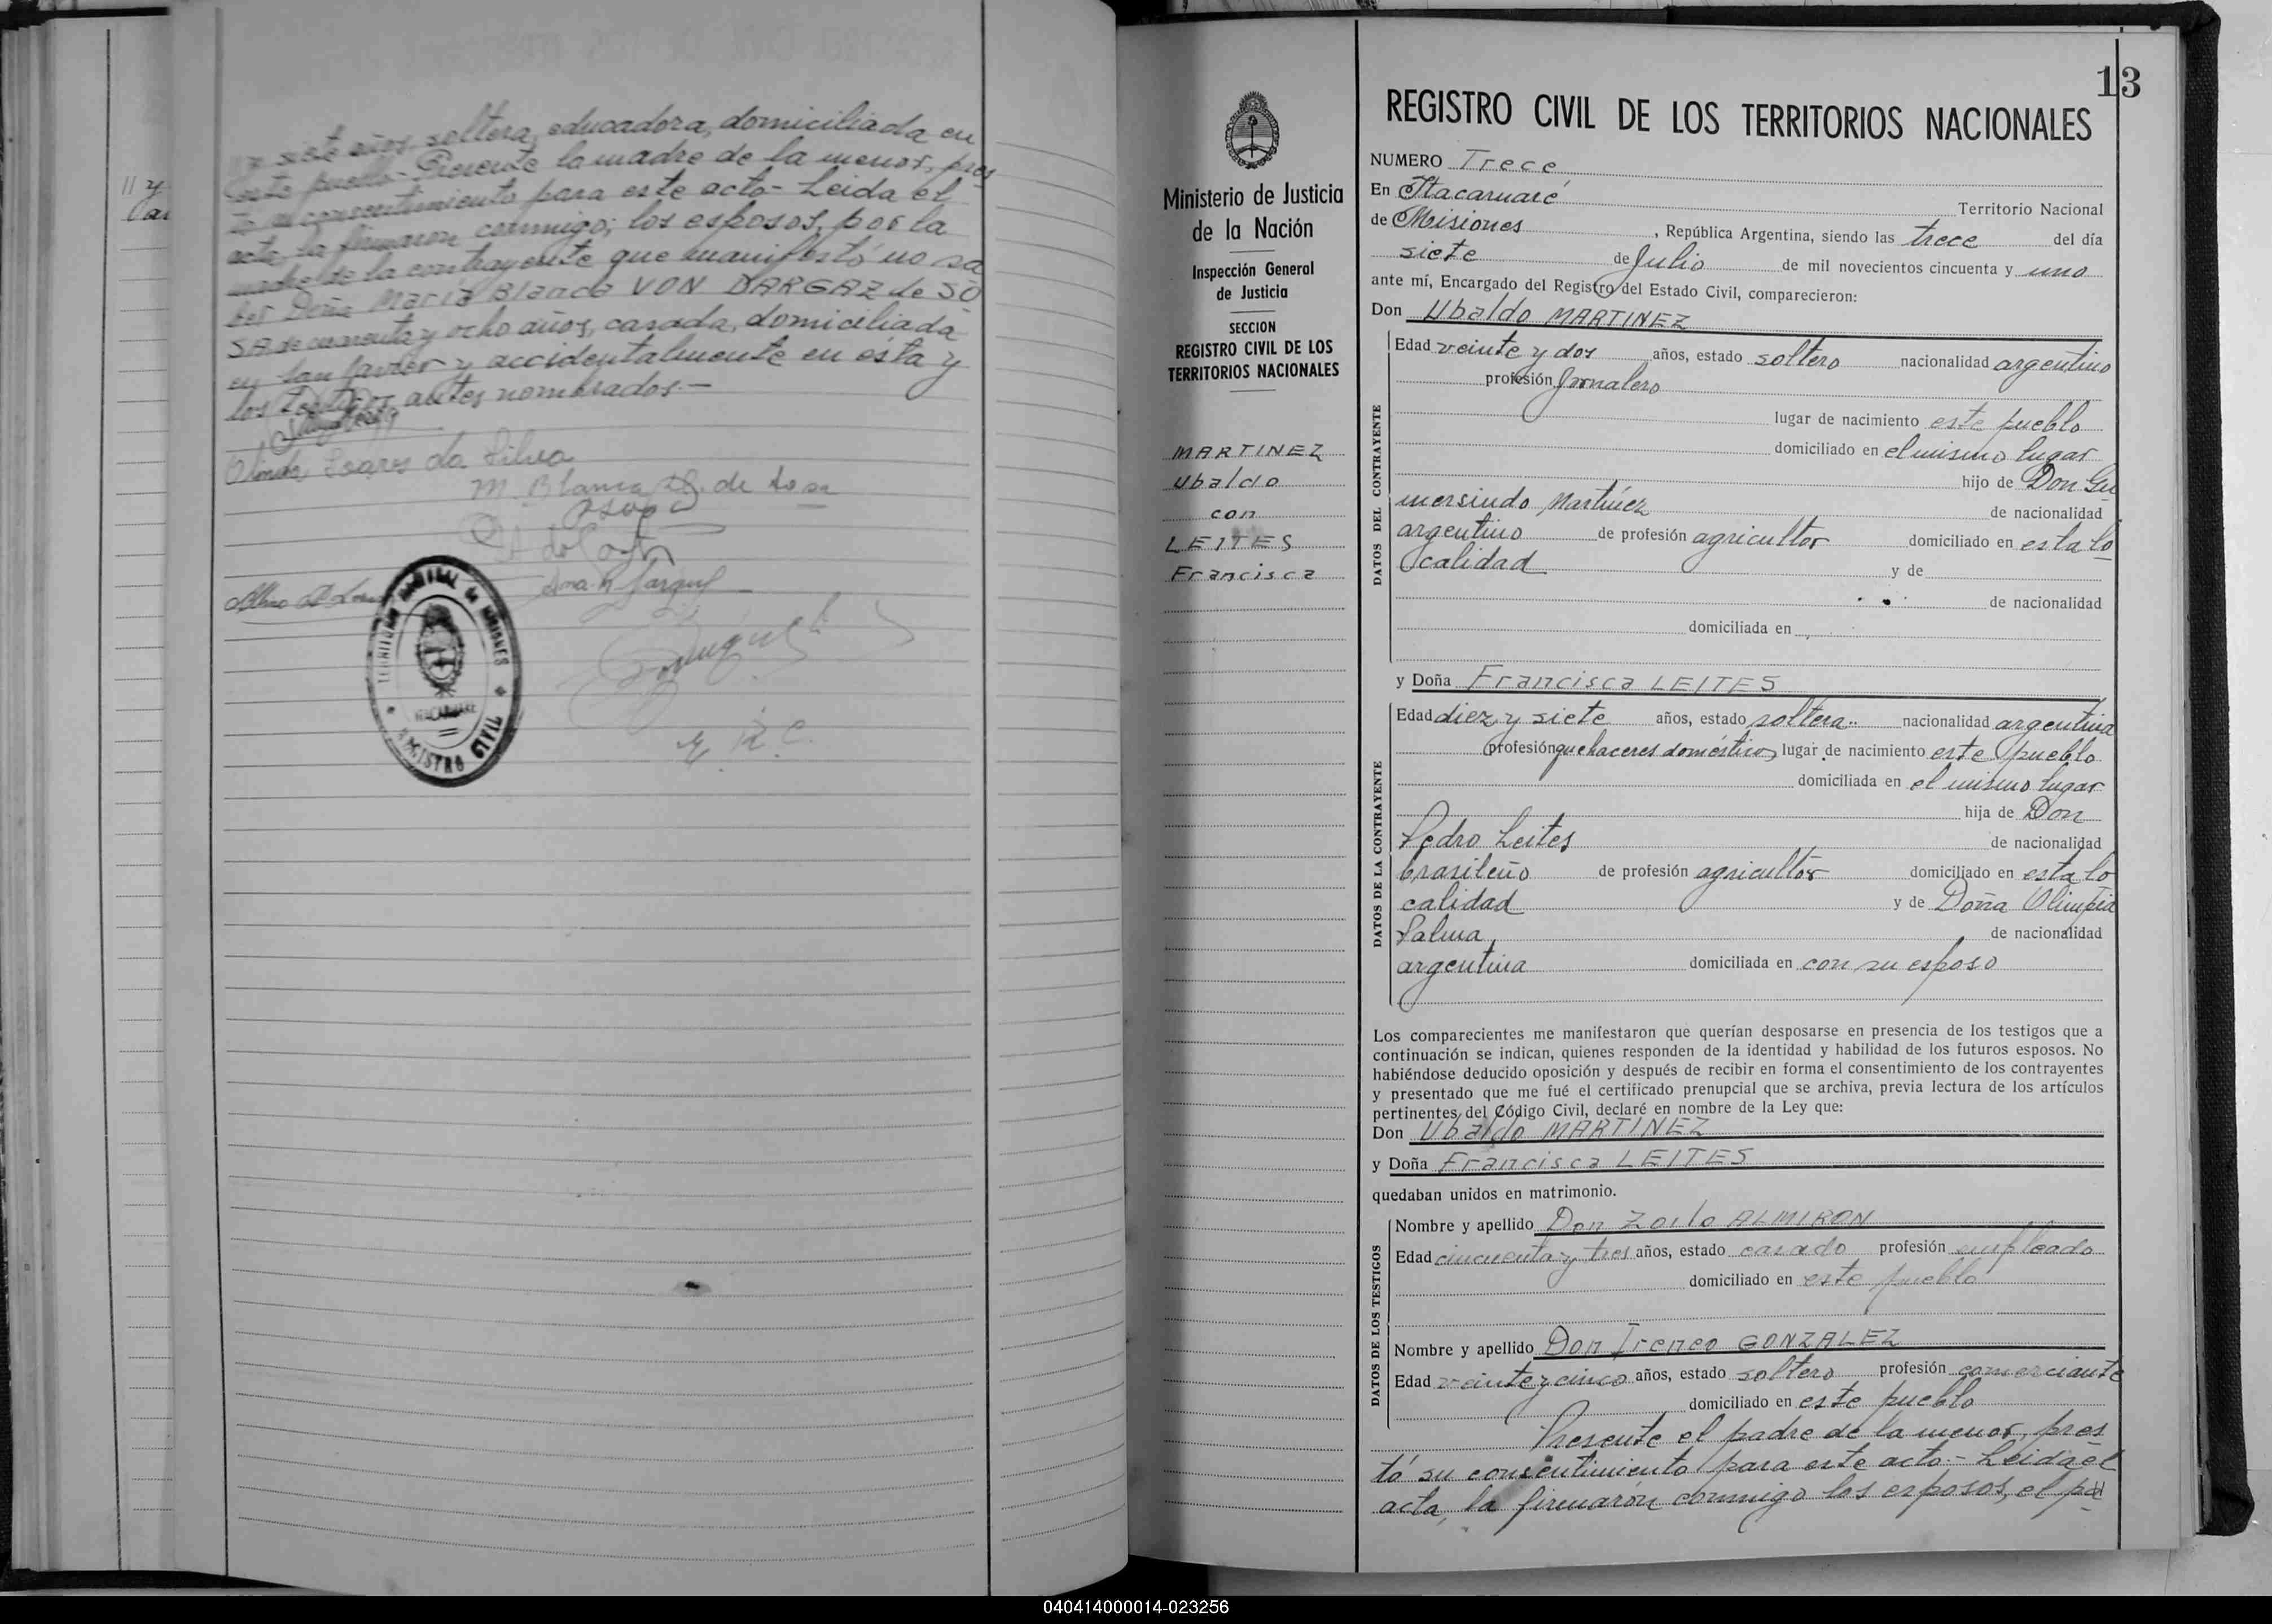 11 y
siete años, soltera, educadora, domiciliada en
este pueblo - Presente la madre de la menor, pres
tó su consentimiento para este acto - Leida el
acta, la firmaron conmigo; los esposos, por la
madre de la contrayente que manifestó no sa
ber Doña Maria Blanca VON DARGAZ de SO
SA de cuarenta y ocho años, casada, domiciliada
en San Javier y accidentalmente en ésta y
los testigos antes nombrados.-
Soares da Silva
M. Blanca de Sosa
TERRITORIO NACIONAL de MISIONES
ITACARUARE
REGISTRO CIVIL
E. R. C.
13
Ministerio de Justicia
de la Nación
Inspección General
de Justicia
SECCION
REGISTRO CIVIL DE LOS
TERRITORIOS NACIONALES
MARTINEZ
Ubaldo
con
LEITES
Francisca
REGISTRO CIVIL DE LOS TERRITORIOS NACIONALES
NUMERO Trece
En Itacaruaré Territorio Nacional
de Misiones , República Argentina, siendo las trece del día
siete de Julio de mil novecientos cincuenta y uno
ante mí, Encargado del Registro del Estado Civil, comparecieron:
Don Ubaldo MARTINEZ
DATOS DEL CONTRAYENTE
Edad veinte y dos años, estado soltero nacionalidad argentino
profesión Jornalero
lugar de nacimiento este pueblo
domiciliado en el mismo lugar
hijo de Don Gu
mersindo Martínez de nacionalidad
argentino de profesión agricultor domiciliado en esta lo
calidad y de
de nacionalidad
domiciliada en
y Doña Francisca LEITES
DATOS DE LA CONTRAYENTE
Edad diez y siete años, estado soltera.. nacionalidad argentina
profesión quehaceres domésticos, lugar de nacimiento este pueblo
domiciliada en el mismo lugar
hija de Don
Pedro Leites de nacionalidad
brasileño de profesión agricultor domiciliado en esta lo
calidad y de Doña Olimpia
Palma, de nacionalidad
argentina domiciliada en con su esposo
Los comparecientes me manifestaron que querían desposarse en presencia de los testigos que a
continuación se indican, quienes responden de la identidad y habilidad de los futuros esposos. No
habiéndose deducido oposición y después de recibir en forma el consentimiento de los contrayentes
y presentado que me fué el certificado prenupcial que se archiva, previa lectura de los artículos
pertinentes del Código Civil, declaré en nombre de la Ley que:
Don Ubaldo MARTINEZ
y Doña Francisca LEITES
quedaban unidos en matrimonio.
DATOS DE LOS TESTIGOS
Nombre y apellido Don Zoilo ALMIRON
Edad cincuenta y tres años, estado casado profesión empleado
domiciliado en este pueblo
Nombre y apellido Don Ireneo GONZALEZ
Edad veinte y cinco años, estado soltero profesión comerciante
domiciliado en este pueblo
Presente el padre de la menor, pres
tó su consentimiento para este acto.- Leida el
acta, la firmarón conmigo los esposos, el pa
040414000014-023256